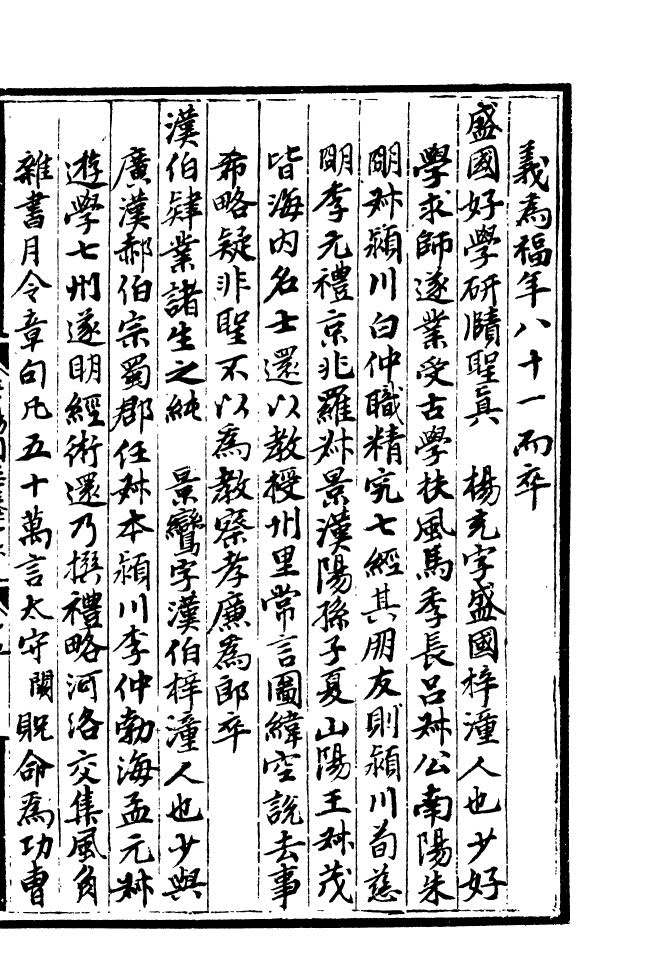 義為福年八十一而卒
盛國好學研賾聖眞　楊充字盛國梓潼人也少好
學求師遂業受古學扶風馬季長呂叔公南陽朱
明叔潁川白仲職精究七經其朋友則潁川荀慈
明李元禮京兆羅叔景漢陽孫子夏山陽王叔茂
皆海内名士還以教授州里常言圖緯空說去事
希略疑非聖不以為教察孝廉為郎卒
漢伯肄業諸生之純　景鸞字漢伯梓潼人也少與
廣漢郝伯宗蜀郡任叔本潁川李仲勃海孟元叔
遊學七州遂明經術還乃撰禮略河洛交集風角
雜書月令章句凡五十萬言太守闕貺命為功曹